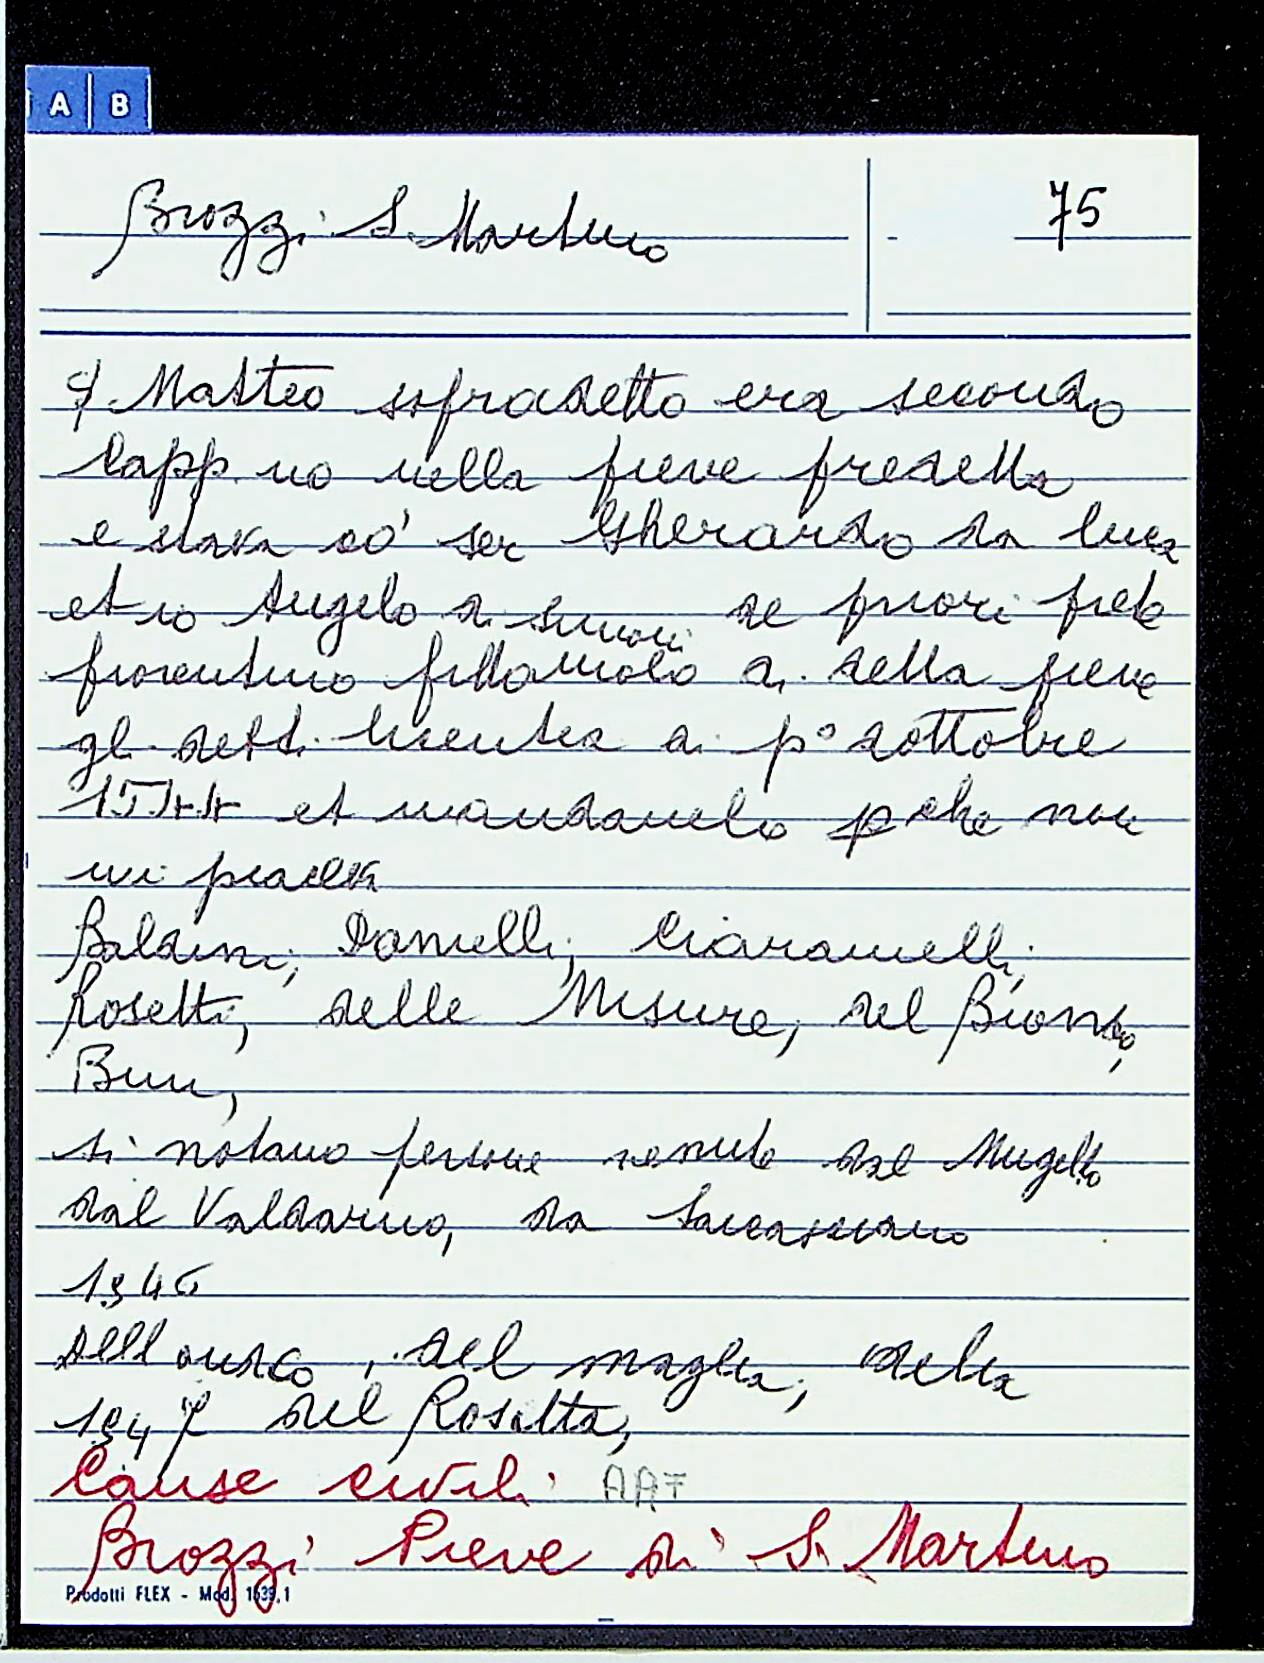 A B
Brozzi S. Martino
75
q. Matteo sopradetto era secondo
Capp.no nella pieve predetta
e stava cò ser Gherardo da Luca
et io Angelo di Simoni de priori prete
fiorentino pittaiuolo di detta pieve
gl. detti licentia a. p° dottobre
1544 et mandamelo pche non
mi piaceva
Baldini, Danielli, Ciaramelli,
Rosetti, delle Misure, del Biondo,
Bini,
si notano persone venute dal Mugello
dal Valdarno, da Sancasciano
1546
dell'orco, del maglia, della
1547 del Rosetta,
Cause civili AAF
Brozzi Pieve di S. Martino
Prodotti FLEX - Mod. 1639,1